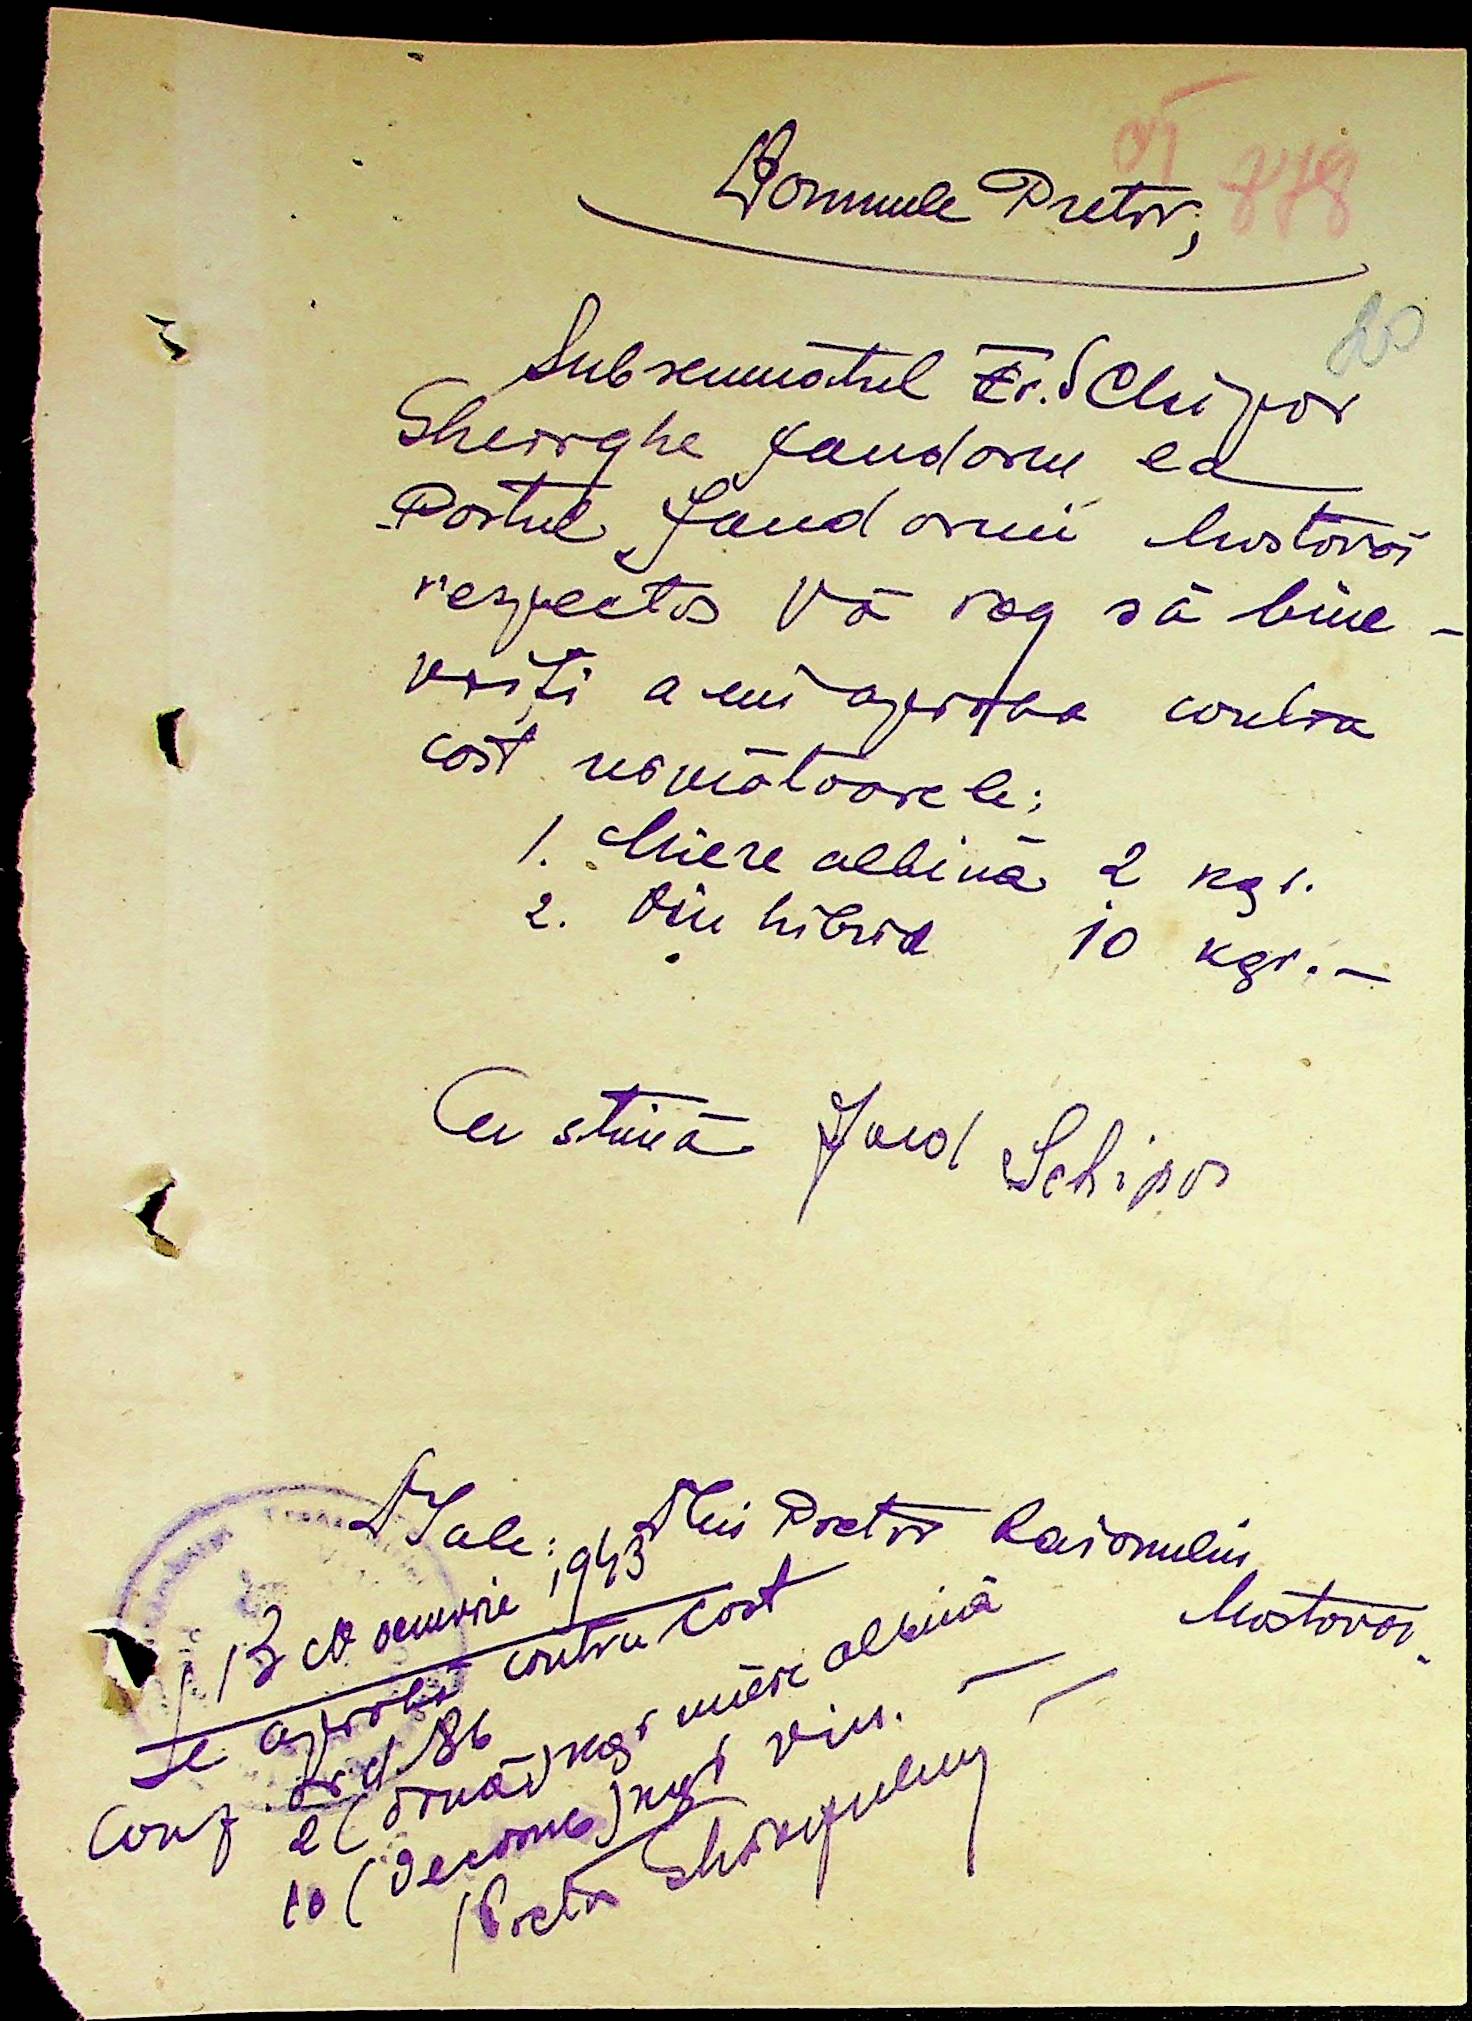 778
Domnule Pretor,
20
Subsemnatul Schipor
Gheorghe jandarm la
Postul Jandarmi Mostovoi
respectos Vă rog să bine-
voiți a mi aproba contra
cost următoarele:
1. Miere albină 2 kgr.
2. Vin hibrid 10 kgr. —
Cu stimă Jand Schipor
D Sale: Dlui Pretor Raionului
Mostovoi.
13 Noemvrie 1943
Se aprobă contra cost
Conf Ord. 86
2 (două) kgr miere albină
10 (zece) kgr vin.
Pretor